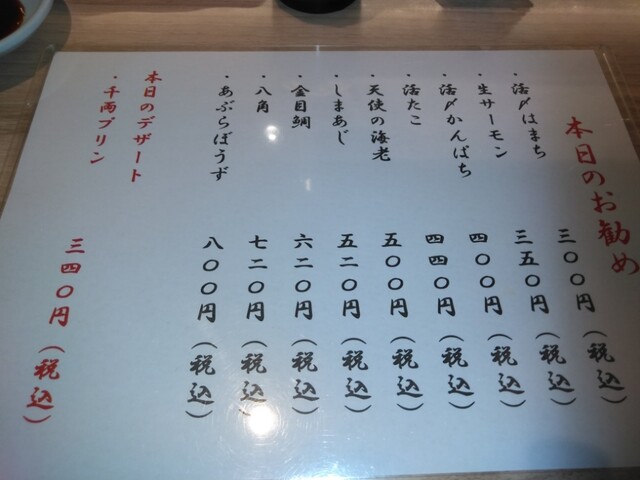 本日のお勧め
・活〆はまち 三〇〇円（税込）
・生サーモン 三五〇円（税込）
・活〆かんぱち 四〇〇円（税込）
・活たこ 四四〇円（税込）
・天使の海老 五〇〇円（税込）
・しまあじ 五二〇円（税込）
・金目鯛 六二〇円（税込）
・八角 七二〇円（税込）
・あぶらぼうず 八〇〇円（税込）
本日のデザート
・千両プリン 三四〇円（税込）